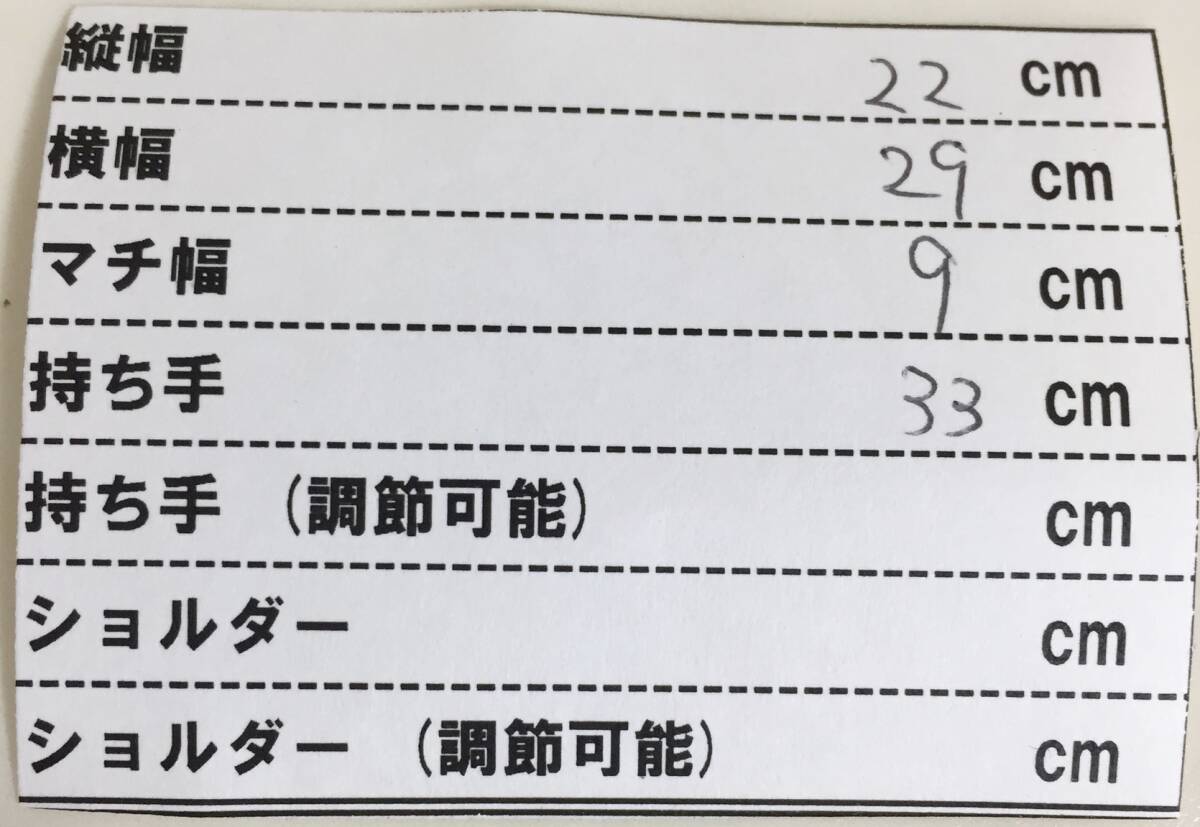 縦幅 22 cm
横幅 29 cm
マチ幅 9 cm
持ち手 33 cm
持ち手 (調節可能) cm
ショルダー cm
ショルダー (調節可能) cm